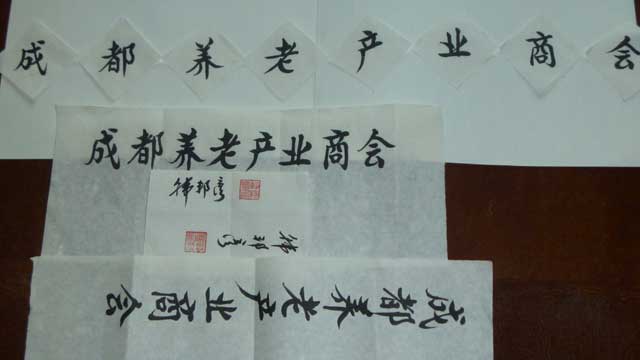 成都养老产业商会
成都养老产业商会
成都养老产业商会